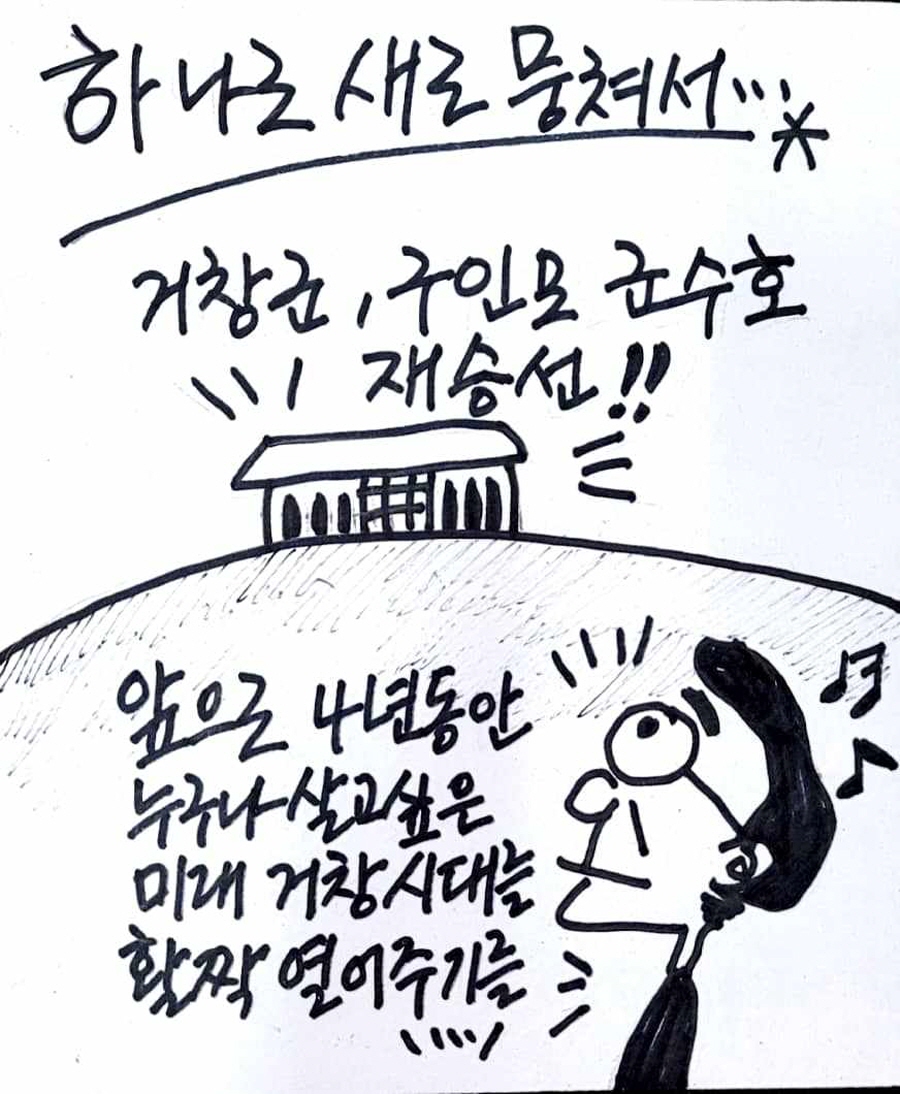 하나로 새로 뭉쳐서...
거창군, 구인모 군수호
재승선!!
앞으로 4년동안
누구나 살고싶은
미래 거창시대를
활짝 열어주기를